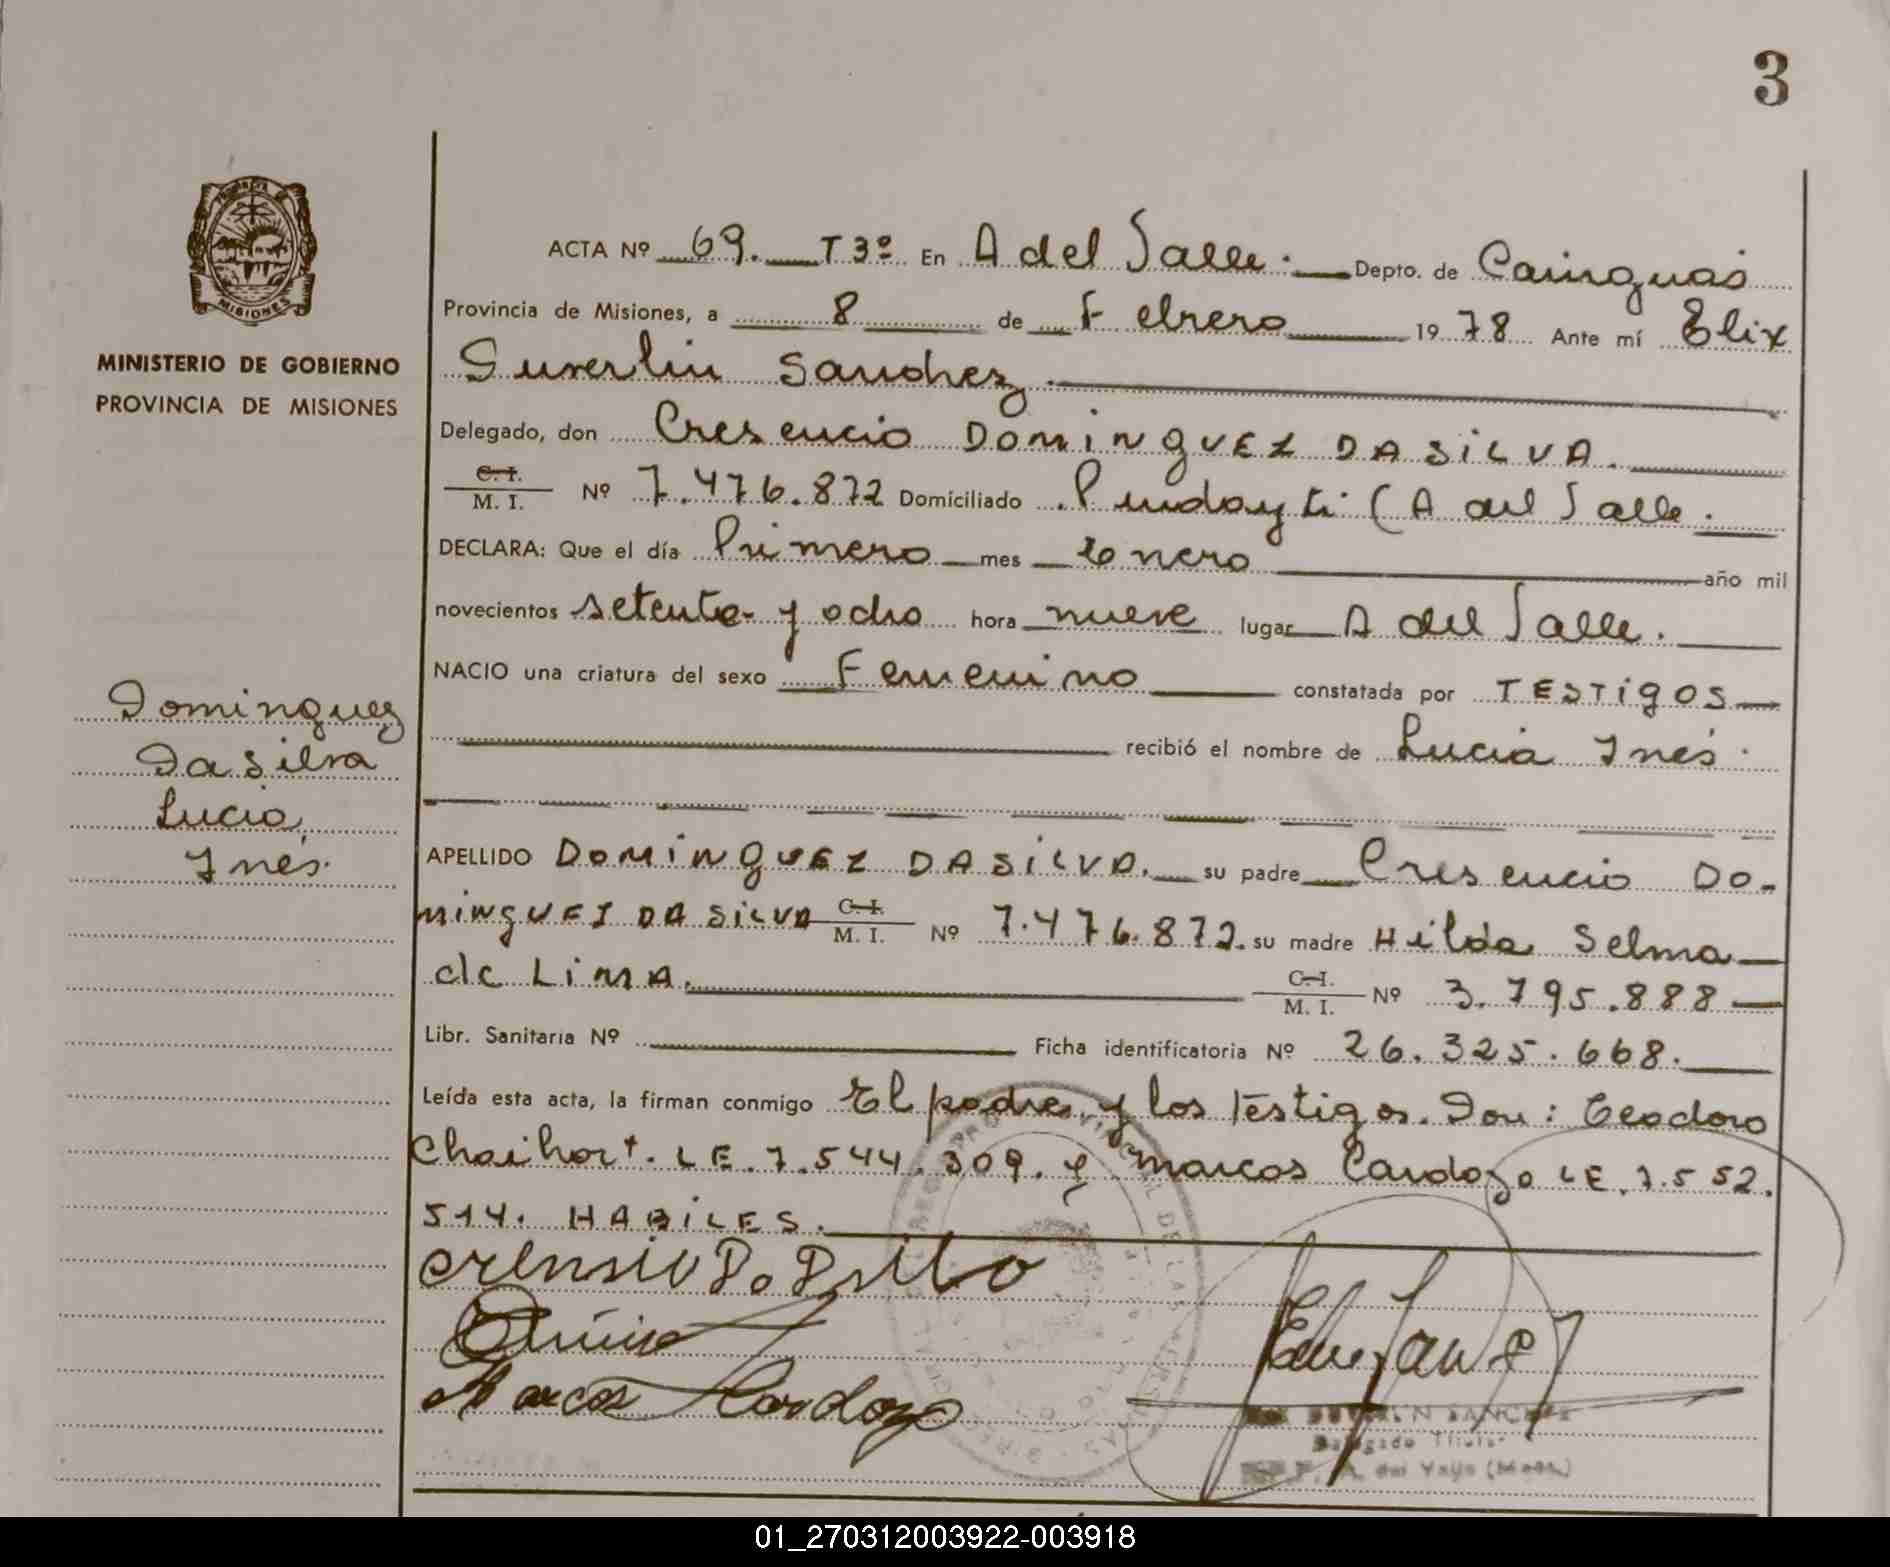 3
ACTA Nº 69. T3º En A del Valle. Depto. de Cainguas
Provincia de Misiones, a 8 de Febrero 1978 Ante mí Elix
Sanchez.
Delegado, don Cresencio DOMINGUEZ DA SILVA.
C. I.
M. I. Nº 7.476.872 Domiciliado Pindayti (A del Valle.
DECLARA: Que el día Primero mes Enero año mil
novecientos setenta y ocho hora nueve lugar A del Valle.
NACIO una criatura del sexo Femenino constatada por TESTIGOS
recibió el nombre de Lucia Inés.
APELLIDO DOMINGUEZ DA SILVA. su padre Cresencio Do-
MINGUEZ DA SILVA C. I. M. I. Nº 7.476.872. su madre Hilda Selma
de LIMA. C. I. M. I. Nº 3.795.888
Libr. Sanitaria Nº Ficha identificatoria Nº 26.325.668.
Leída esta acta, la firman conmigo El padre y los Testigos. Don: Teodoro
LE. 7.544.309. y Marcos Cardozo LE. 7.552.
514. HABILES.
Marcos Cardozo
MISIONES
MINISTERIO DE GOBIERNO
PROVINCIA DE MISIONES
Dominguez
Da Silva
Lucia,
Inés.
SANCHEZ
Delegado Titular
A. del Valle (Mnes.)
01_270312003922-003918